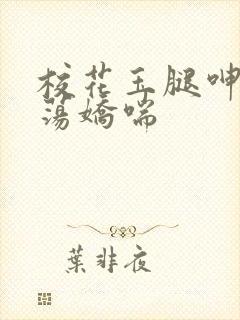 校花玉腿呻
荡嬌喘
葉非夜